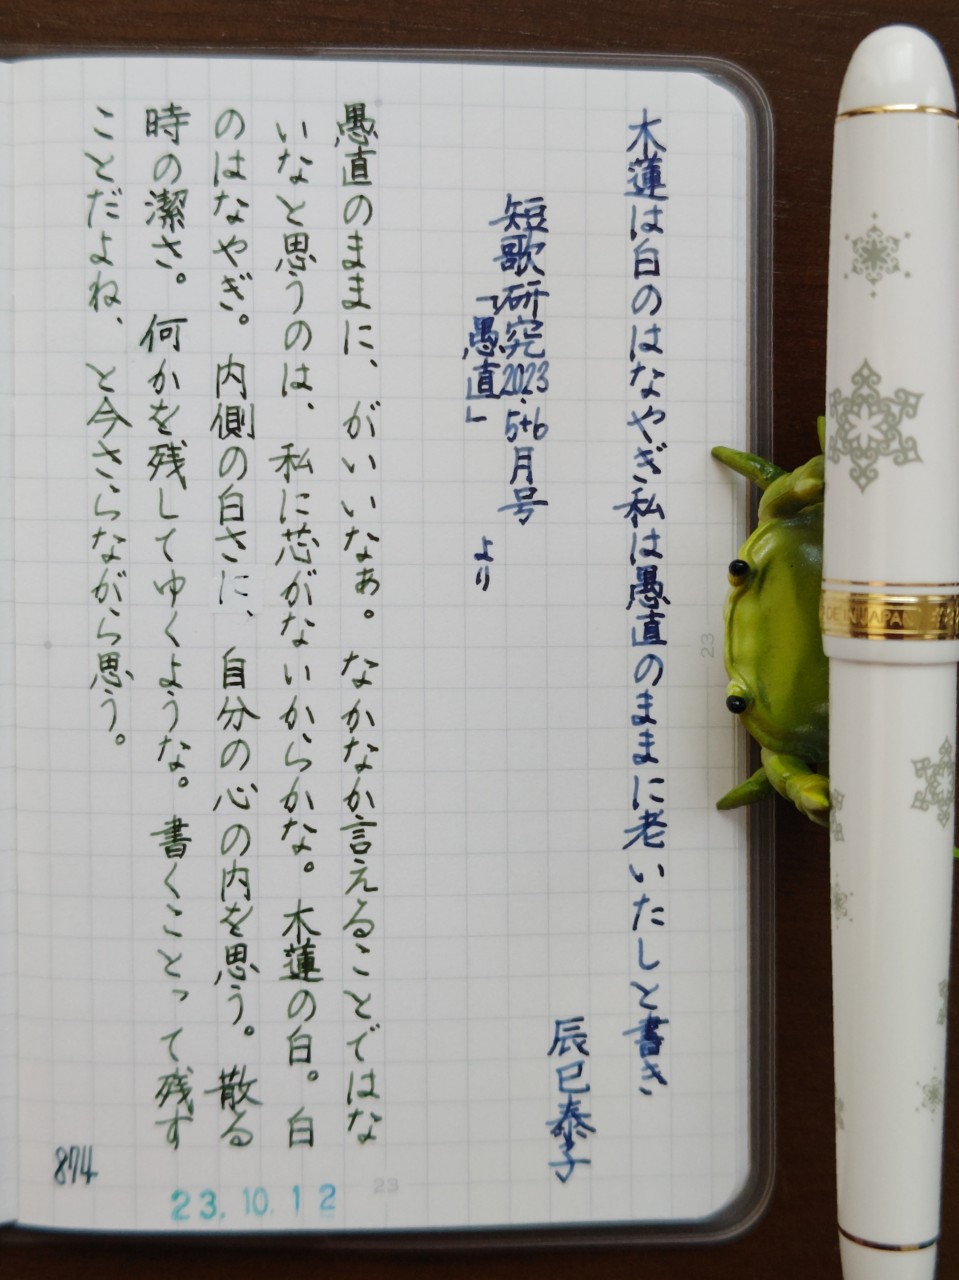 木蓮は白のはなやぎ私は愚直のままに老いたしと書き
辰巳泰子
短歌研究2023.5+6月号
「愚直」
より
愚直のままに、がいいなぁ。なかなか言えることではな
いなと思うのは、私に芯がないからかな。木蓮の白。白
のはなやぎ。内側の白さに、自分の心の内を思う。散る
時の潔さ。何かを残してゆくような。書くことって残す
ことだよね、と今さらながら思う。
874
23.10.12
23
23
MADE IN JAPAN